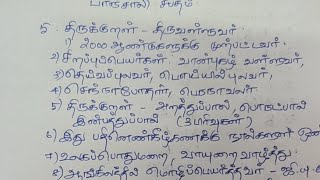 பாஞ்சாலி சபதம்
5. திருக்குறள் - திருவள்ளுவர்
1) 2000 ஆண்டுகளுக்கு முற்பட்டவர்
2) சிறப்புப்பெயர்கள் வான்புகழ் வள்ளுவர்,
3) தெய்வப்புலவர், பொய்யில்புலவர்,
4) செந்நாப்போதார், பெருநாவலர்
5) திருக்குறள் - அறத்துப்பால், பொருட்பால்
இன்பத்துப்பால் (3 பிரிவுகள்)
6) இது பதினெண்கீழ்கணக்கு நூல்களுள் ஒன்
7) உலகப்பொதுமறை, வாயுறை வாழ்த்து
8) ஆங்கிலத்தில் மொழிபெயர்த்தவர் - ஜி.யு.